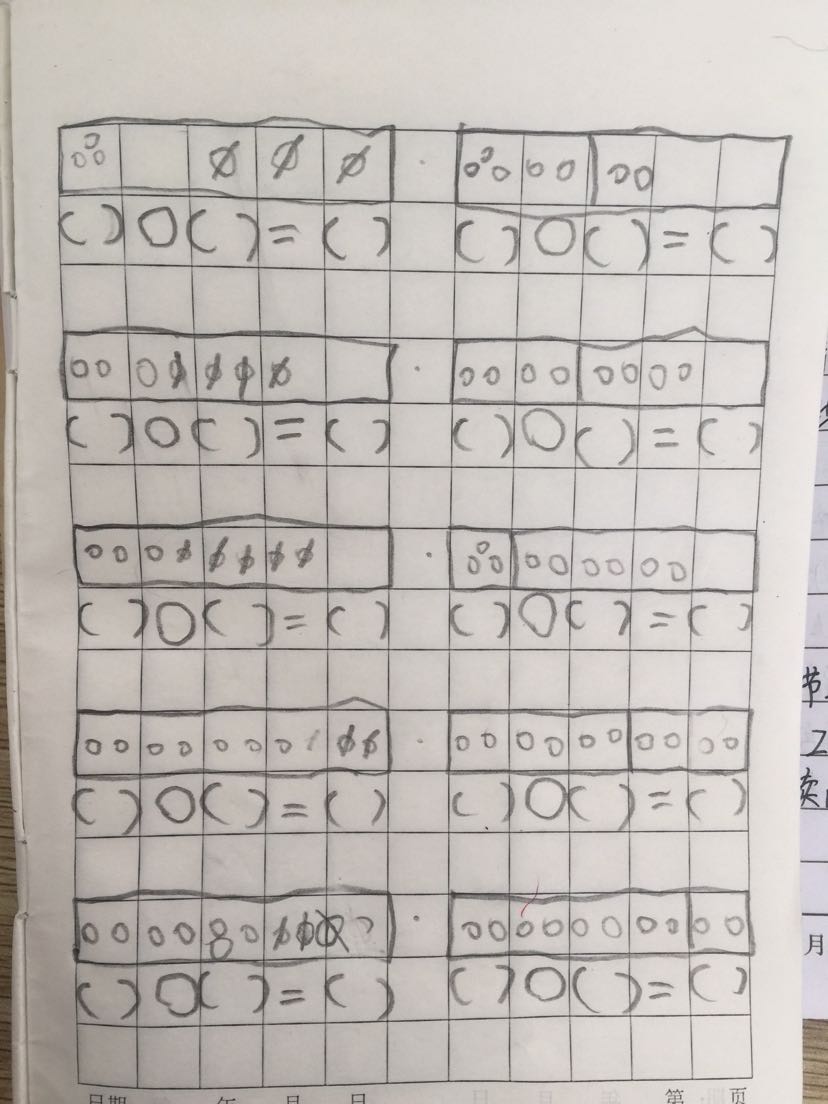 ( ) ○ ( ) = ( ) ( ) ○ ( ) = ( )
( ) ○ ( ) = ( ) ( ) ○ ( ) = ( )
( ) ○ ( ) = ( ) ( ) ○ ( ) = ( )
( ) ○ ( ) = ( ) ( ) ○ ( ) = ( )
( ) ○ ( ) = ( ) ( ) ○ ( ) = ( )
日期 年 月 日 第 页
节
月